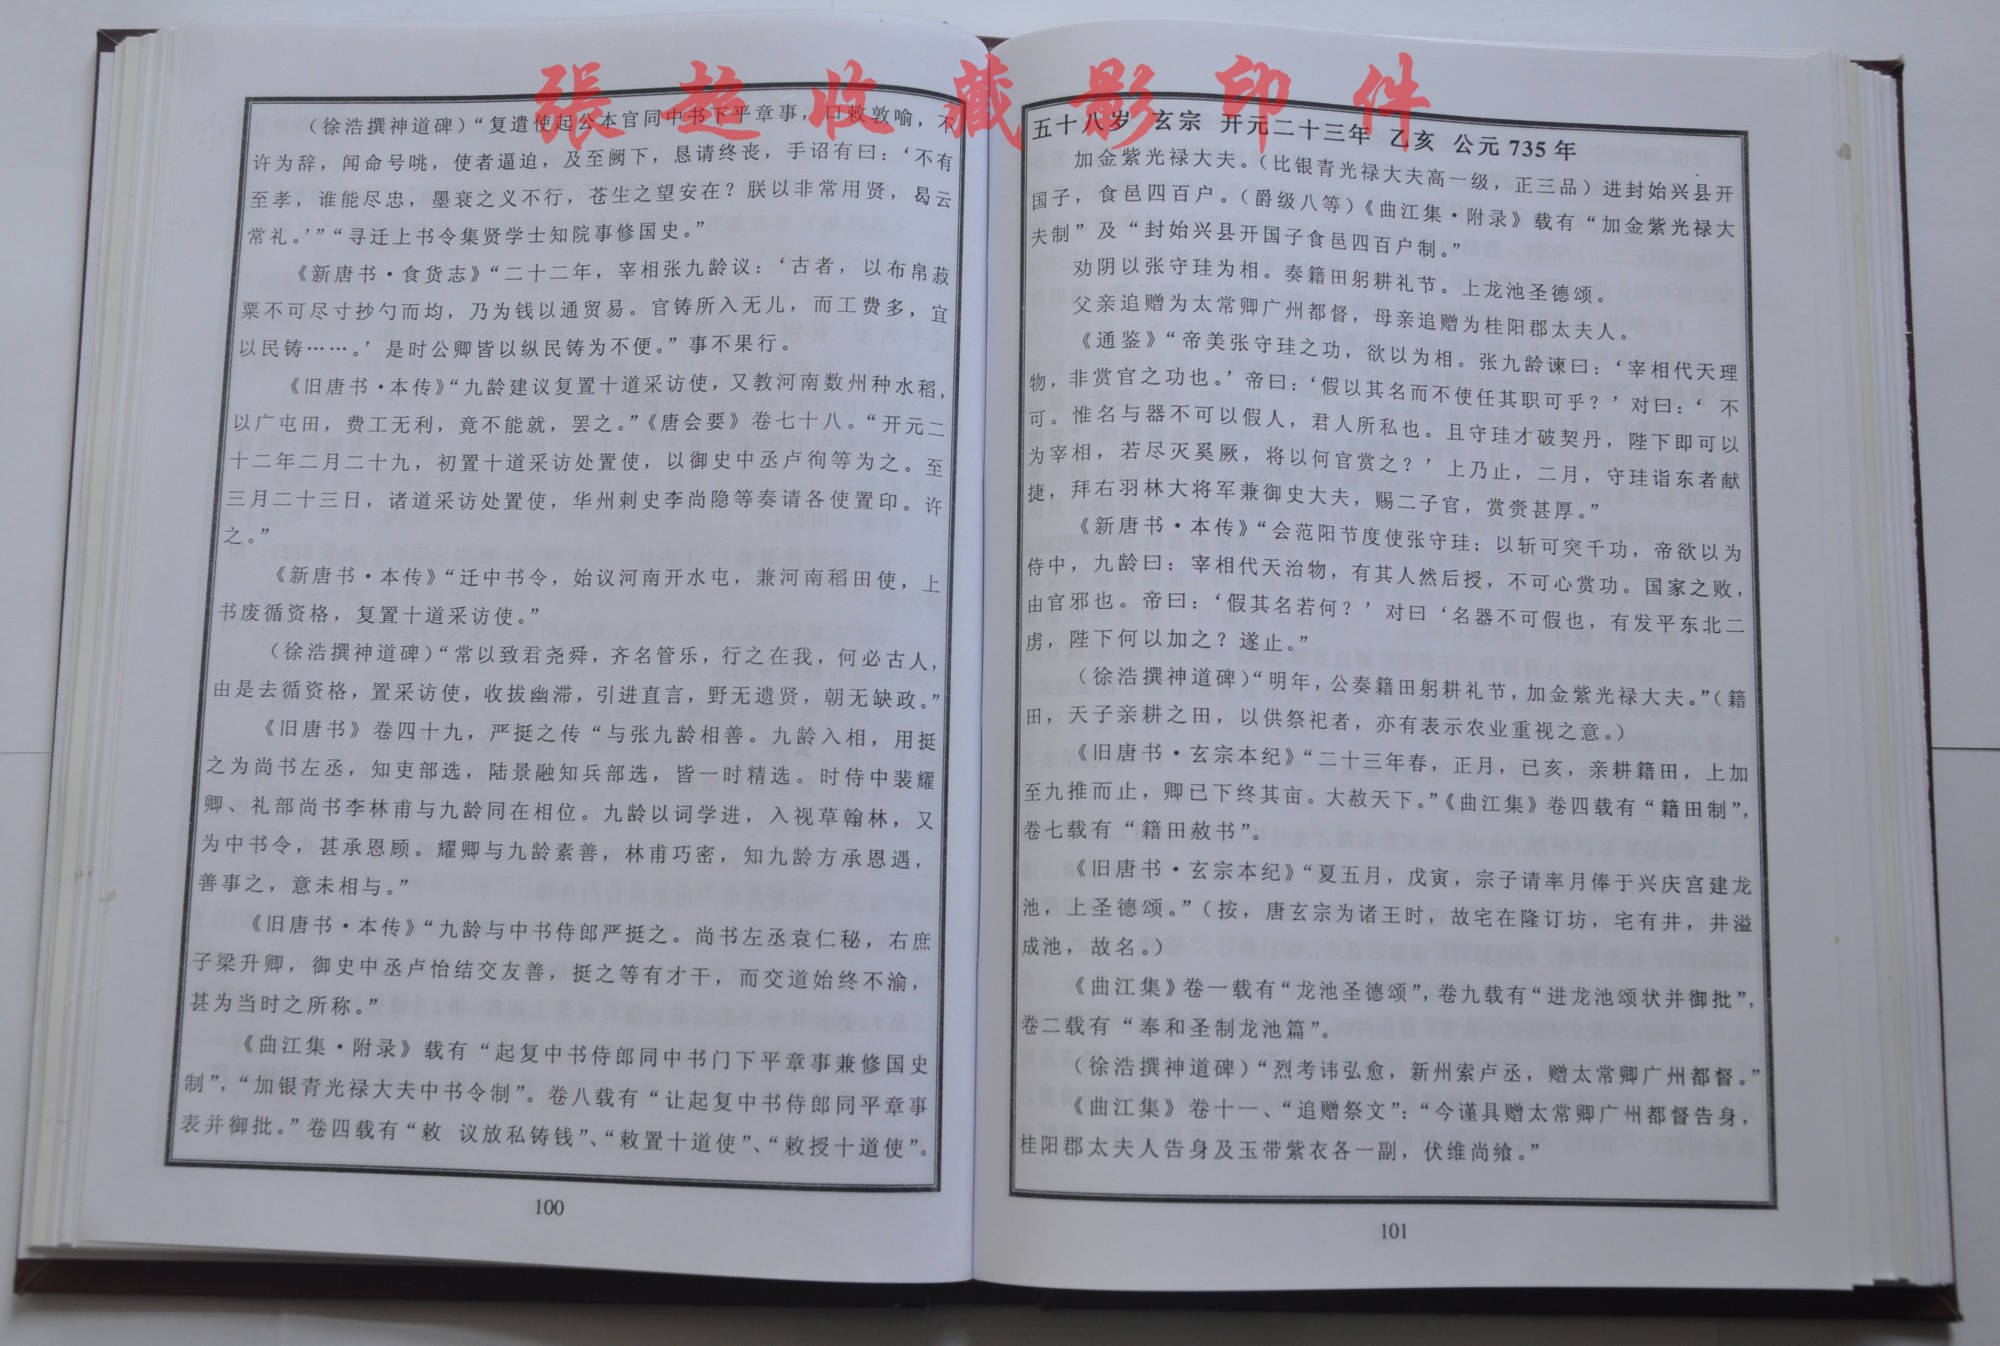 張超收藏影印件
（徐浩撰神道碑）“复遣使起公本官同中书下平章事，口敕敦喻，不
许为辞，闻命号咷，使者逼迫，及至阙下，恳请终丧，手诏有曰：‘不有
至孝，谁能尽忠，墨衰之义不行，苍生之望安在？朕以非常用贤，曷云
常礼。’”“寻迁上书令集贤学士知院事修国史。”
《新唐书·食货志》“二十二年，宰相张九龄议：‘古者，以布帛菽
粟不可尺寸抄勺而均，乃为钱以通贸易。官铸所入无儿，而工费多，宜
以民铸……。’是时公卿皆以纵民铸为不便。”事不果行。
《旧唐书·本传》“九龄建议复置十道采访使，又教河南数州种水稻，
以广屯田，费工无利，竟不能就，罢之。”《唐会要》卷七十八。“开元二
十二年二月二十九，初置十道采访处置使，以御史中丞卢徇等为之。至
三月二十三日，诸道采访处置使，华州刺史李尚隐等奏请各使置印。许
之。”
《新唐书·本传》“迁中书令，始议河南开水屯，兼河南稻田使，上
书废循资格，复置十道采访使。”
（徐浩撰神道碑）“常以致君尧舜，齐名管乐，行之在我，何必古人，
由是去循资格，置采访使，收拔幽滞，引进直言，野无遗贤，朝无缺政。”
《旧唐书》卷四十九，严挺之传“与张九龄相善。九龄入相，用挺
之为尚书左丞，知吏部选，陆景融知兵部选，皆一时精选。时侍中裴耀
卿、礼部尚书李林甫与九龄同在相位。九龄以词学进，入视草翰林，又
为中书令，甚承恩顾。耀卿与九龄素善，林甫巧密，知九龄方承恩遇，
善事之，意未相与。”
《旧唐书·本传》“九龄与中书侍郎严挺之。尚书左丞袁仁秘，右庶
子梁升卿，御史中丞卢怡结交友善，挺之等有才干，而交道始终不渝，
甚为当时之所称。”
《曲江集·附录》载有“起复中书侍郎同中书门下平章事兼修国史
制”，“加银青光禄大夫中书令制”。卷八载有“让起复中书侍郎同平章事
表并御批。”卷四载有“敕 议放私铸钱”、“敕置十道使”、“敕授十道使”。
100
五十八岁 玄宗 开元二十三年 乙亥 公元735年
加金紫光禄大夫。（比银青光禄大夫高一级，正三品）进封始兴县开
国子，食邑四百户。（爵级八等）《曲江集·附录》载有“加金紫光禄大
夫制”及“封始兴县开国子食邑四百户制。”
劝阴以张守珪为相。奏籍田躬耕礼节。上龙池圣德颂。
父亲追赠为太常卿广州都督，母亲追赠为桂阳郡太夫人。
《通鉴》“帝美张守珪之功，欲以为相。张九龄谏曰：‘宰相代天理
物，非赏官之功也。’帝曰：‘假以其名而不使任其职可乎？’对曰：‘ 不
可。惟名与器不可以假人，君人所私也。且守珪才破契丹，陛下即可以
为宰相，若尽灭奚厥，将以何官赏之？’上乃止，二月，守珪诣东者献
捷，拜右羽林大将军兼御史大夫，赐二子官，赏赉甚厚。”
《新唐书·本传》“会范阳节度使张守珪；以斩可突千功，帝欲以为
侍中，九龄曰：宰相代天治物，有其人然后授，不可心赏功。国家之败，
由官邪也。帝曰：‘假其名若何？’对曰‘名器不可假也，有发平东北二
虏，陛下何以加之？遂止。”
（徐浩撰神道碑）“明年，公奏籍田躬耕礼节，加金紫光禄大夫。”（籍
田，天子亲耕之田，以供祭祀者，亦有表示农业重视之意。）
《旧唐书·玄宗本纪》“二十三年春，正月，已亥，亲耕籍田，上加
至九推而止，卿已下终其亩。大赦天下。”《曲江集》卷四载有“籍田制”，
卷七载有“籍田赦书”。
《旧唐书·玄宗本纪》“夏五月，戊寅，宗子请率月俸于兴庆宫建龙
池，上圣德颂。”（按，唐玄宗为诸王时，故宅在隆订坊，宅有井，井溢
成池，故名。）
《曲江集》卷一载有“龙池圣德颂”，卷九载有“进龙池颂状并御批”，
卷二载有“奉和圣制龙池篇”。
（徐浩撰神道碑）“烈考讳弘愈，新州索卢丞，赠太常卿广州都督。”
《曲江集》卷十一、“追赠祭文”：“今谨具赠太常卿广州都督告身，
桂阳郡太夫人告身及玉带紫衣各一副，伏维尚飨。”
101